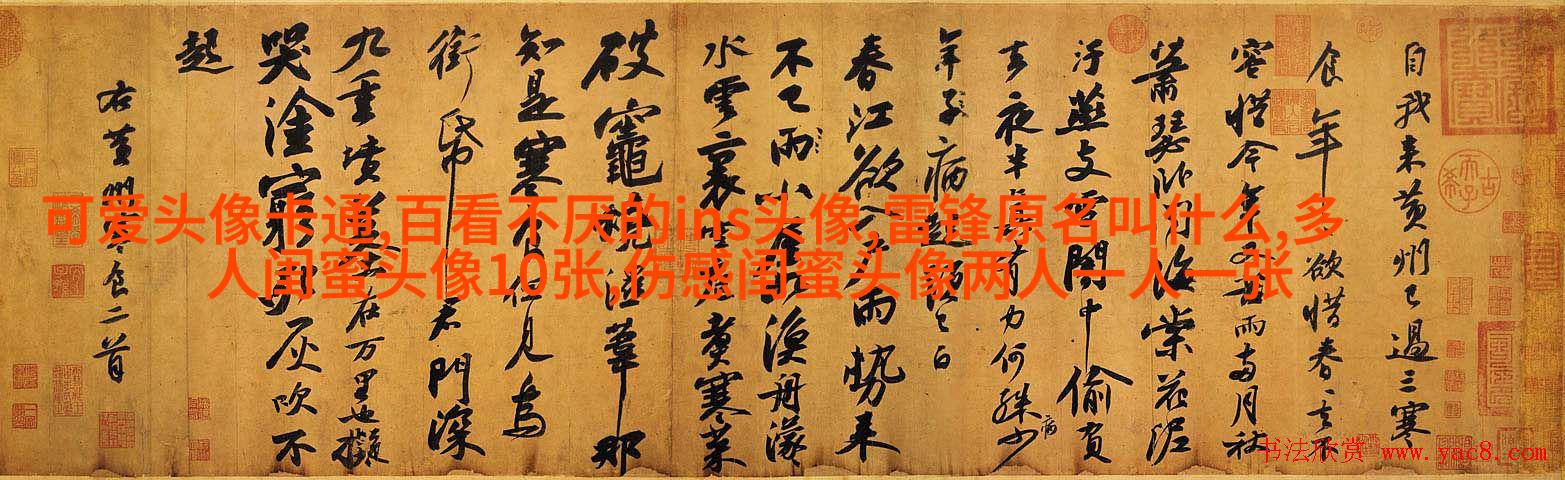 自我来黄州已過三寒
食年〻欲惜春〻去不
容惜今年又苦雨兩月秋
蕭瑟卧聞海棠花泥
汙燕支雪闇中偷負
去夜半真有力何殊少
病
年子病起頭已白
春江欲入户雨勢来
不已雨小屋如漁舟濛〻
水雲裏空庖煑寒菜
破竈燒濕葦那
知是寒食但見烏
銜帋君門深
九重墳墓在万里也擬
哭塗窮死灰吹不
起
右黄州寒食二首
可爱头像卡通,百看不厌的ins头像,雷锋原名叫什么,多
人闺蜜头像10张,伤感闺蜜头像两人一人一张
书法欣赏 www.yac8.com